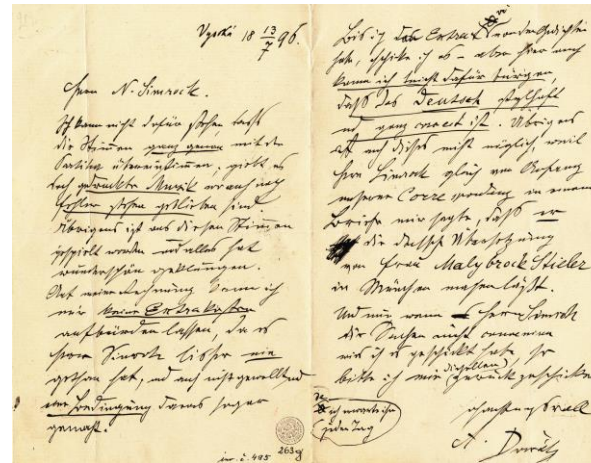 Vysoká 18 13/7 96.
Herrn N. Simrock.
Ich kann nicht dafür stehen, dass
die Stimmen ganz genau mit der
Partitur übereinstimmen; giebt es
doch gedruckte Musik wo auch noch
Fehler stehen geblieben sind
Übrigens ist aus diesen Stimmen
gespielt worden und alles hat
wunderschön geklungen.
Auf meine Rechnung kann ich
mir keine Extrakosten
aufbürden lassen, da es
Herr Simrock bisher nie
gethan hat, und auch nicht gewollt und
eine Bedingung daraus sogar
gemacht.
Bis ich das Extra von der Gedichten
habe, schicke ich es – aber hier auch
kann ich nicht dafür bürgen,
dass das Deutsch stylhaft
und ganz correct ist. Übrigens
ist auch dieses nicht möglich, weil
Herr Simrock gleich am Anfang
unserer Correspondenz in einem
Briefe mir sagte, dass er
die deutsche Übersetzung
von Frau Malybrock Stieler
in München machen lässt.
Und nur wenn Herr Simrock
die Sachen nicht
wie ich es geschickt habe, so
bitte ich mir dieselben zurück zu schicken
ich erwarte sie
jeden Tag
A. Dvořák
in. č. 495
263g